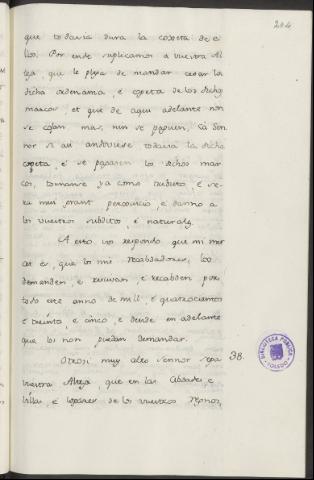 204
que todavia dura la copeta de e
llos. Por ende suplicamos a vuestra Al
teza, que le plega de mandar cesar la
dicha ordenanza, é copeta de los dichos
marcos, et que de aqui adelante non
se cojan mas, nin se paguen, Cà Sen
nor si asi andoviese todavia la dicha
copeta é se pagasen los dichos mar
cos, tomarse ya como tributo, é se
ria muy grant perjuicio, é danno a
los vuestros subditos, é naturales
A esto vos respondo que mi mer
ced es, que los mis Recabdadores, los
demanden, é recivan, é recabden por
todo este anno de mil, é quatrocientos
é treinta, é cinco, é dende en adelante
que los non puedan demandar.
Otrosi muy alto sennor sepa 38.
vuestra Alteza, que en las Cibdades é
villas, é logares de los vuestros regnos,
BIBLIOTECA PUBLICA
TOLEDO